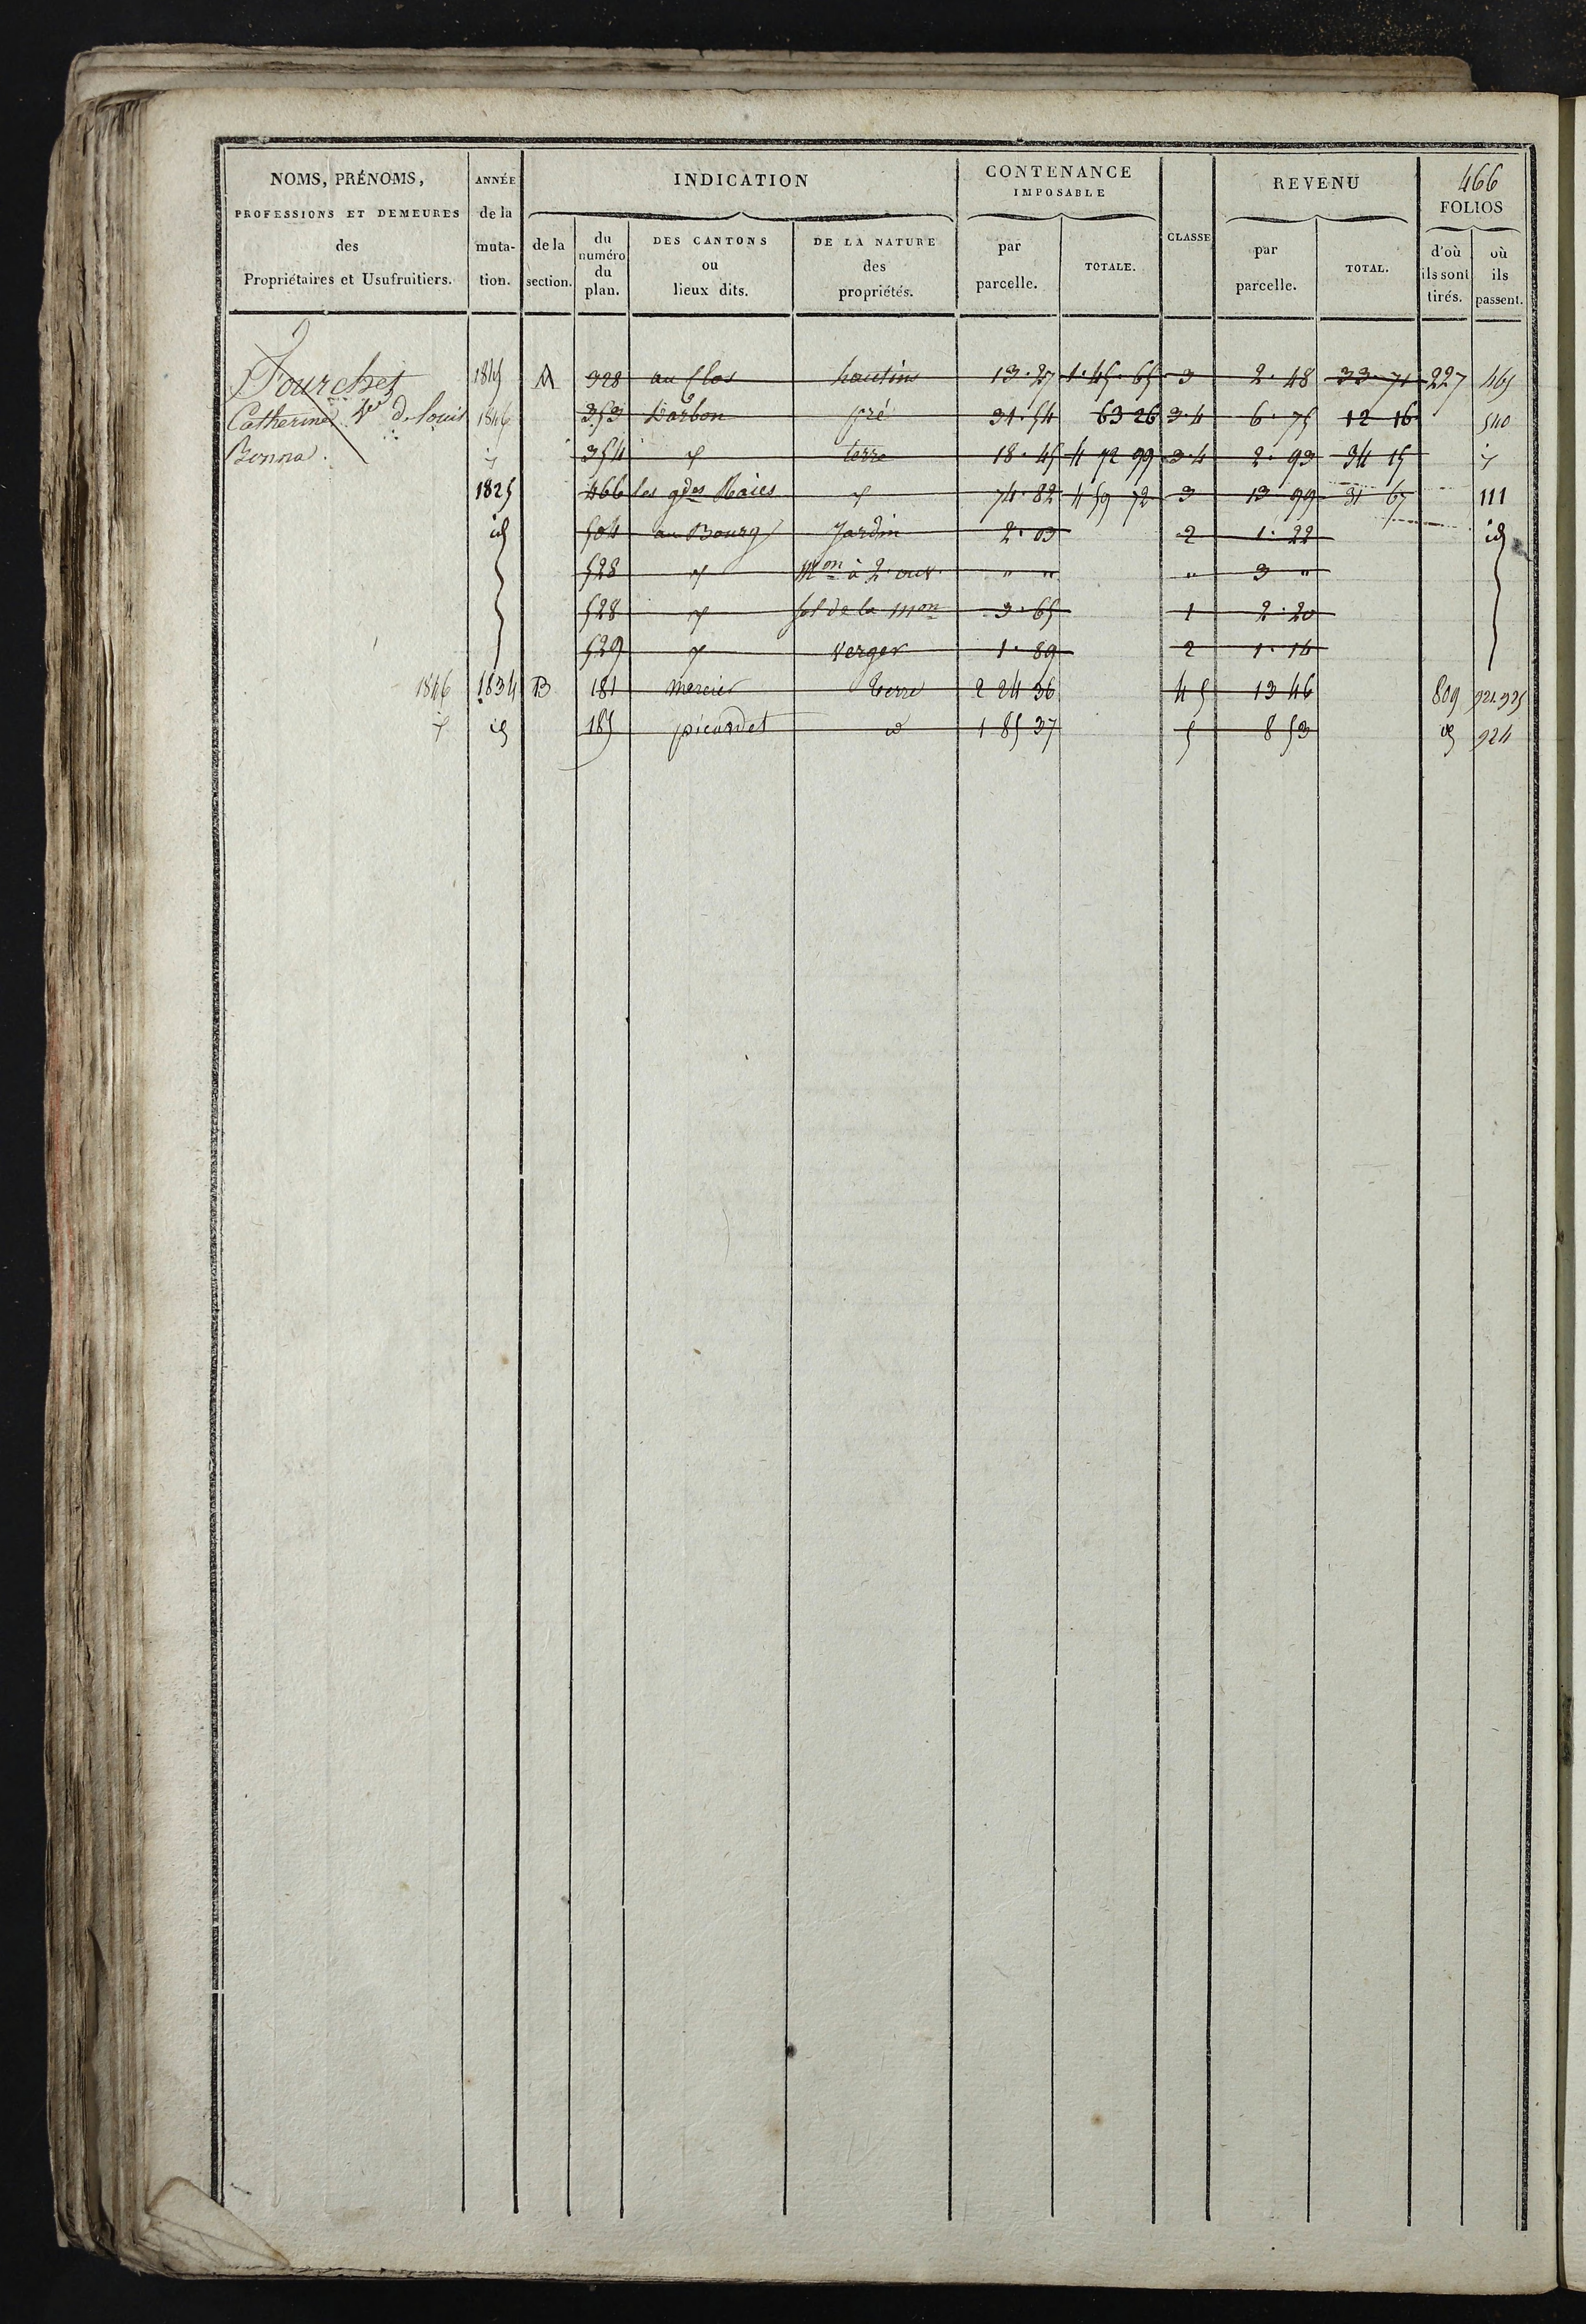 NOMS, PRÉNOMS,
PROFESSIONS ET DEMEURES
des
Propriétaires et Usufruitiers.
ANNÉE
de la
muta-
tion.
INDICATION
de la
section.
du
numéro
du
plan.
DES CANTONS
ou
lieux dits.
DE LA NATURE
des
propriétés.
CONTENANCE
IMPOSABLE
par
parcelle.
TOTALE.
CLASSE
REVENU
par
parcelle.
TOTAL.
466
FOLIOS
d'où
ils sont
tirés.
où
ils
passent.
Fourchet 1845 A 328 au Clos hautins 13·27 1·45·65 3 2·48 33·71 227 465
Catherine Ve de Louis 1846 353 pré 31·54 63 26 3·4 6·75 12 16 540
Bonna. 354 terre 18·45 4 72 99 3·4 2·93 34 15
1825 466 les gdes Raies 74·82 4 59 72 3 13 99 31 67 111
id 504 au Bourg Jardin 2·03 2 1·22 id
528 Mon à 2 ouv. " " " 3 "
528 sol de la mon 3·65 1 2·20
529 verger 1·89 2 1·14
1846 1834 B 181 mercier terre 2 24 36 4 5 13 46 809 921.925
id 185 picardet id 1 85 37 5 8 53 id 924